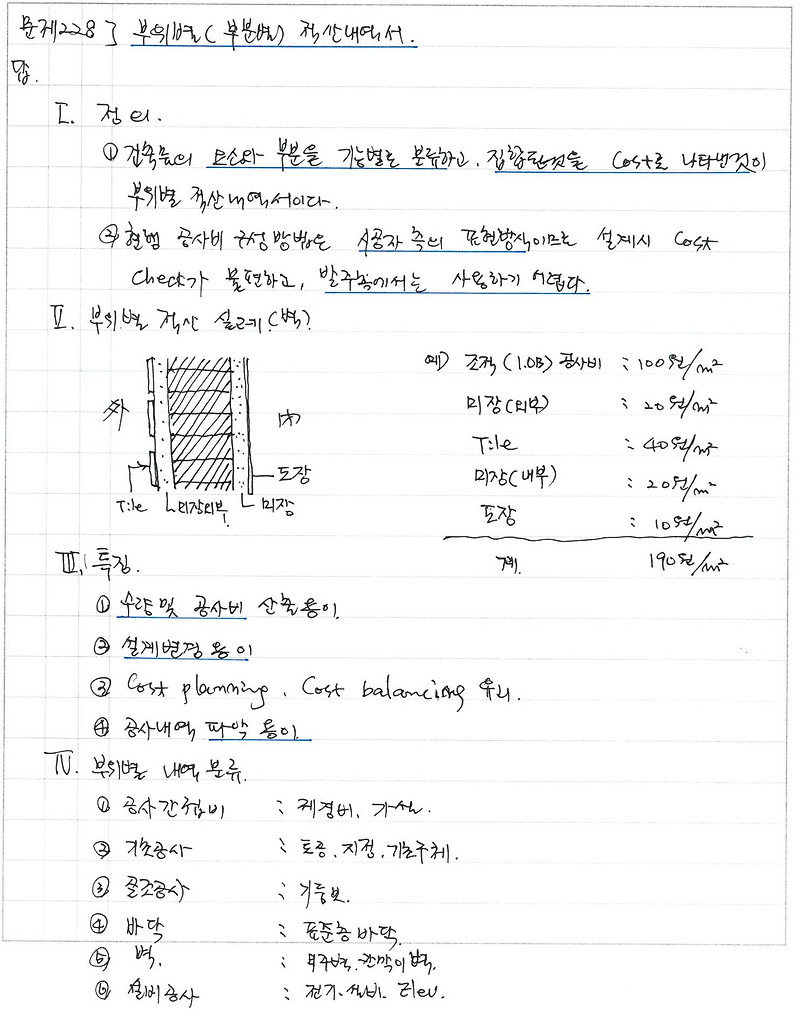 문제228] 부위별(부분별) 적산내역서.
답.
I. 정의.
① 건축물의 요소와 부분을 기능별로 분류하고, 집합된것을 Cost로 나타낸것이
부위별 적산내역서이다.
② 현행 공사비 구성방법은 시공자 측의 표현방식이므로 설계시 Cost
Check가 불편하고, 발주측에서는 사용하기 어렵다.
II. 부위별 적산 실례(벽)
外 內
도장
Tile 미장외부 미장
예) 조적(1.0B) 공사비 : 100원/m²
미장(외부) : 20원/m²
Tile : 40원/m²
미장(내부) : 20원/m²
도장 : 10원/m²
계. 190원/m²
III. 특징.
① 수량 및 공사비 산출용이.
② 설계변경 용이
③ Cost planning, Cost balancing 유리.
④ 공사내역 파악 용이.
IV. 부위별 내역 분류.
① 공사간접비 : 제경비, 가설.
② 기초공사 : 토공, 지정, 기초구체.
③ 골조공사 : 기둥보.
④ 바닥 : 표준층 바닥.
⑤ 벽. : 외주벽, 칸막이벽.
⑥ 설비공사 : 전기, 설비, Elev.